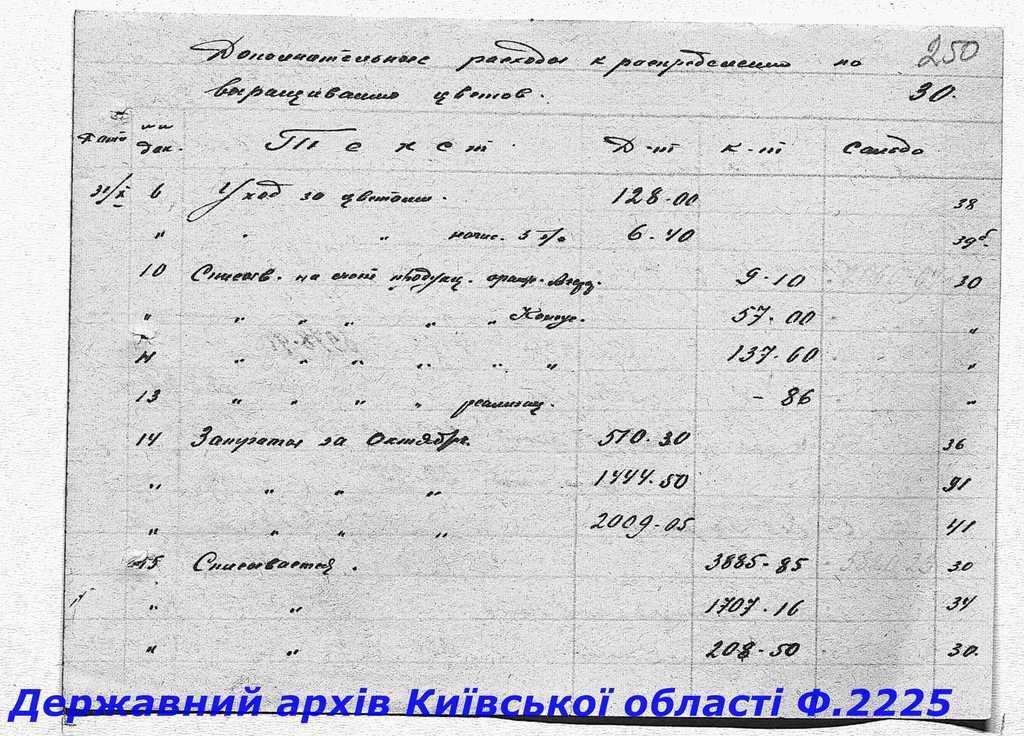 250
Дополнительные расходы к распределению по
выращиванию цветов. 30.
Дата № № док. Текст. Д-т К-т Сальдо
31/X 6 Уход за цветами. 128-00 38
" " " начис. 5% 6-40 39б.
10 Списыв. на счет продукц. оранж. 9-10 30
" " " " " " Конус. 57-00 "
11 " " " " " " 137-60 "
13 " " " " реализац. - 86 "
14 Затраты за Октябрь. 510-30 36
" " " " 1444-50 91
" " " " 2009-05 41
15 Списывается. 3885-85 30
" " 1707-16 34
" " 208-50 30.
Державний архів Київської області Ф.2225